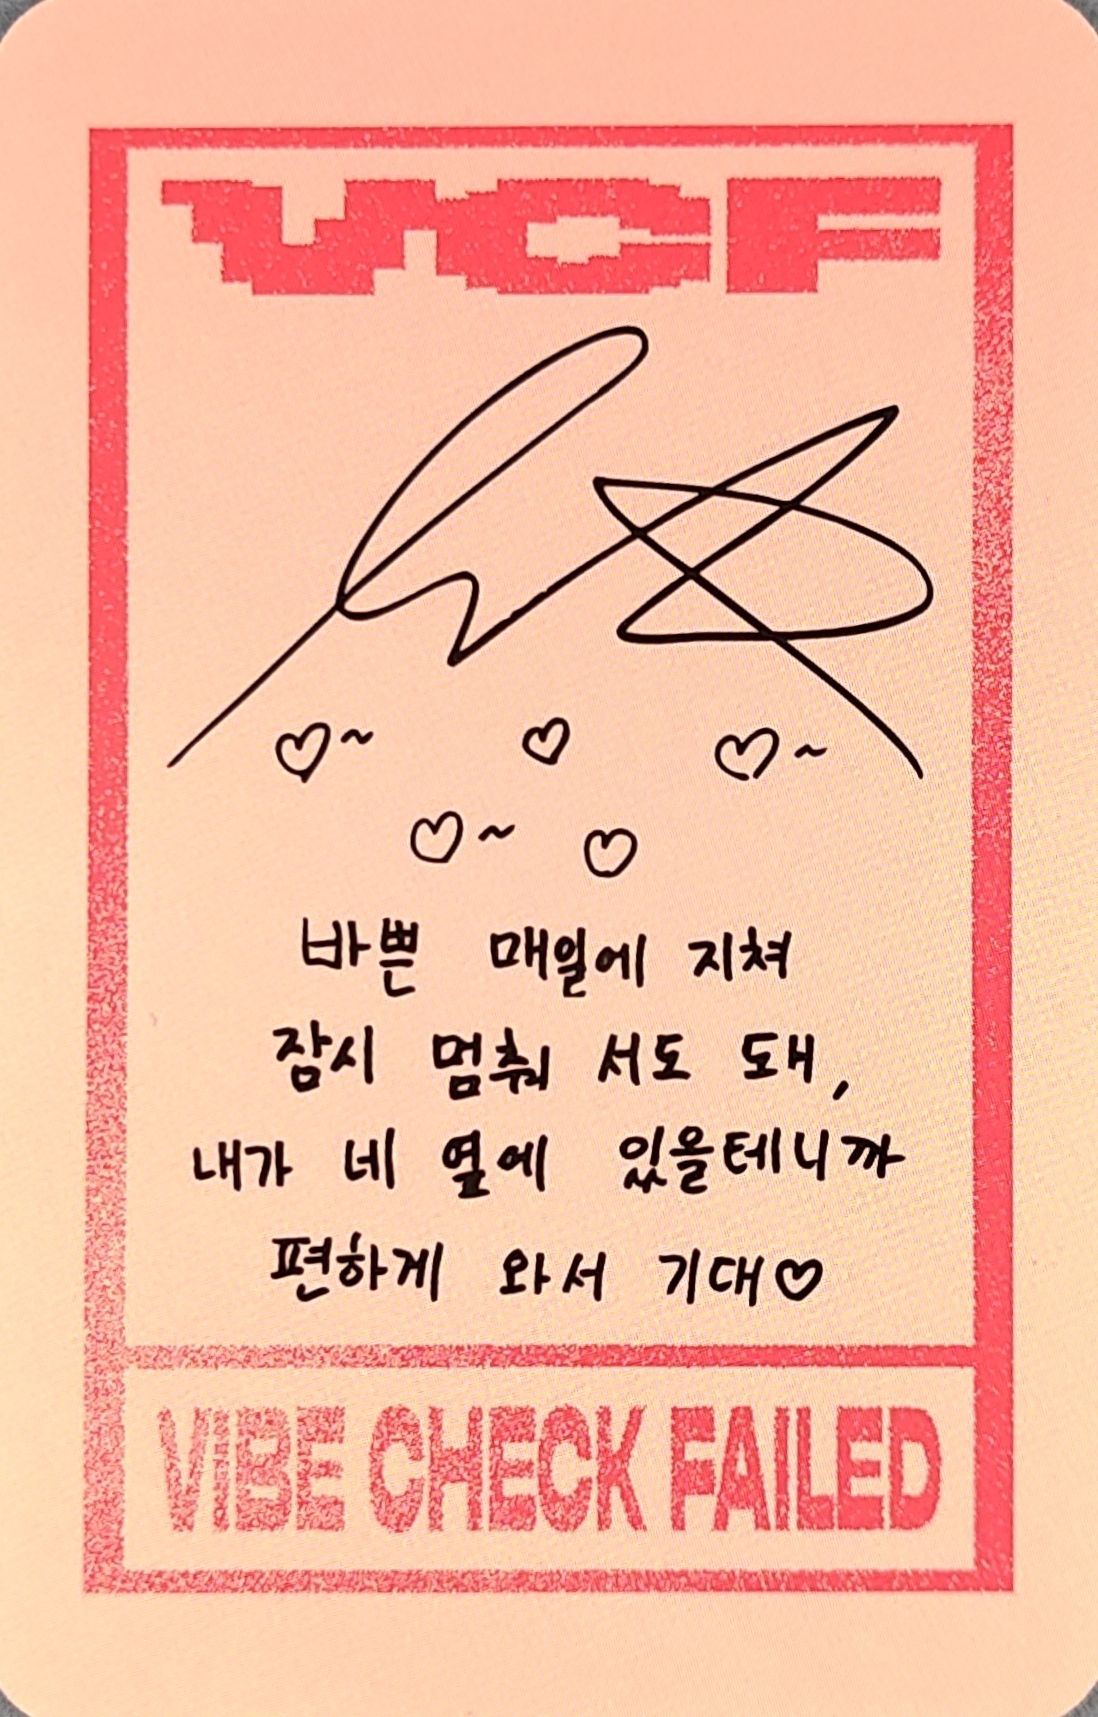 VCF
♡~ ♡ ♡~
♡~ ♡
바쁜 매일에 지쳐
잠시 멈춰 서도 돼,
내가 네 옆에 있을테니까
편하게 와서 기대♡
VIBE CHECK FAILED